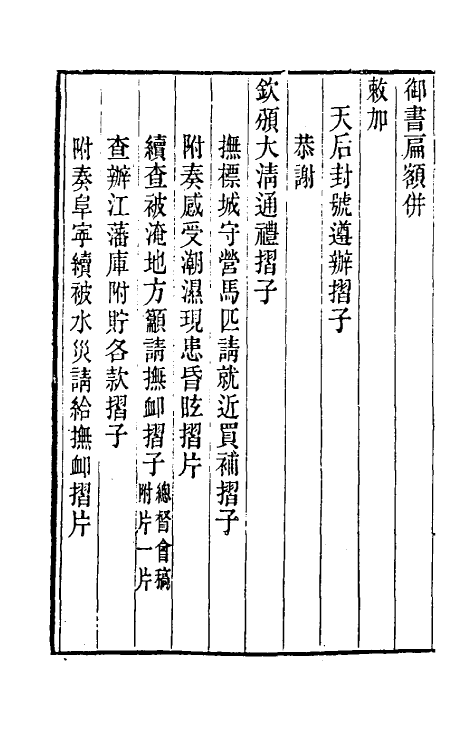 御書扁額併
敕加
天后封號遵辦摺子
恭謝
欽頒大淸通禮摺子
撫標城守營馬匹請就近買補摺子
附奏感受潮濕現患昏眩摺片
續查被淹地方籲請撫卹摺子總督會稿附片一片
查辦江藩庫附貯各款摺子
附奏阜寧續被水災請給撫卹摺片